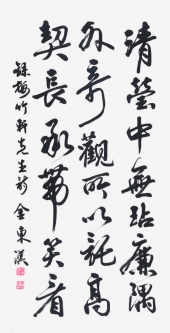 清瑩中無玷廉隅
外奇觀所以託高
契長承帶笑看
錄梅竹軒先生詩 金東漢